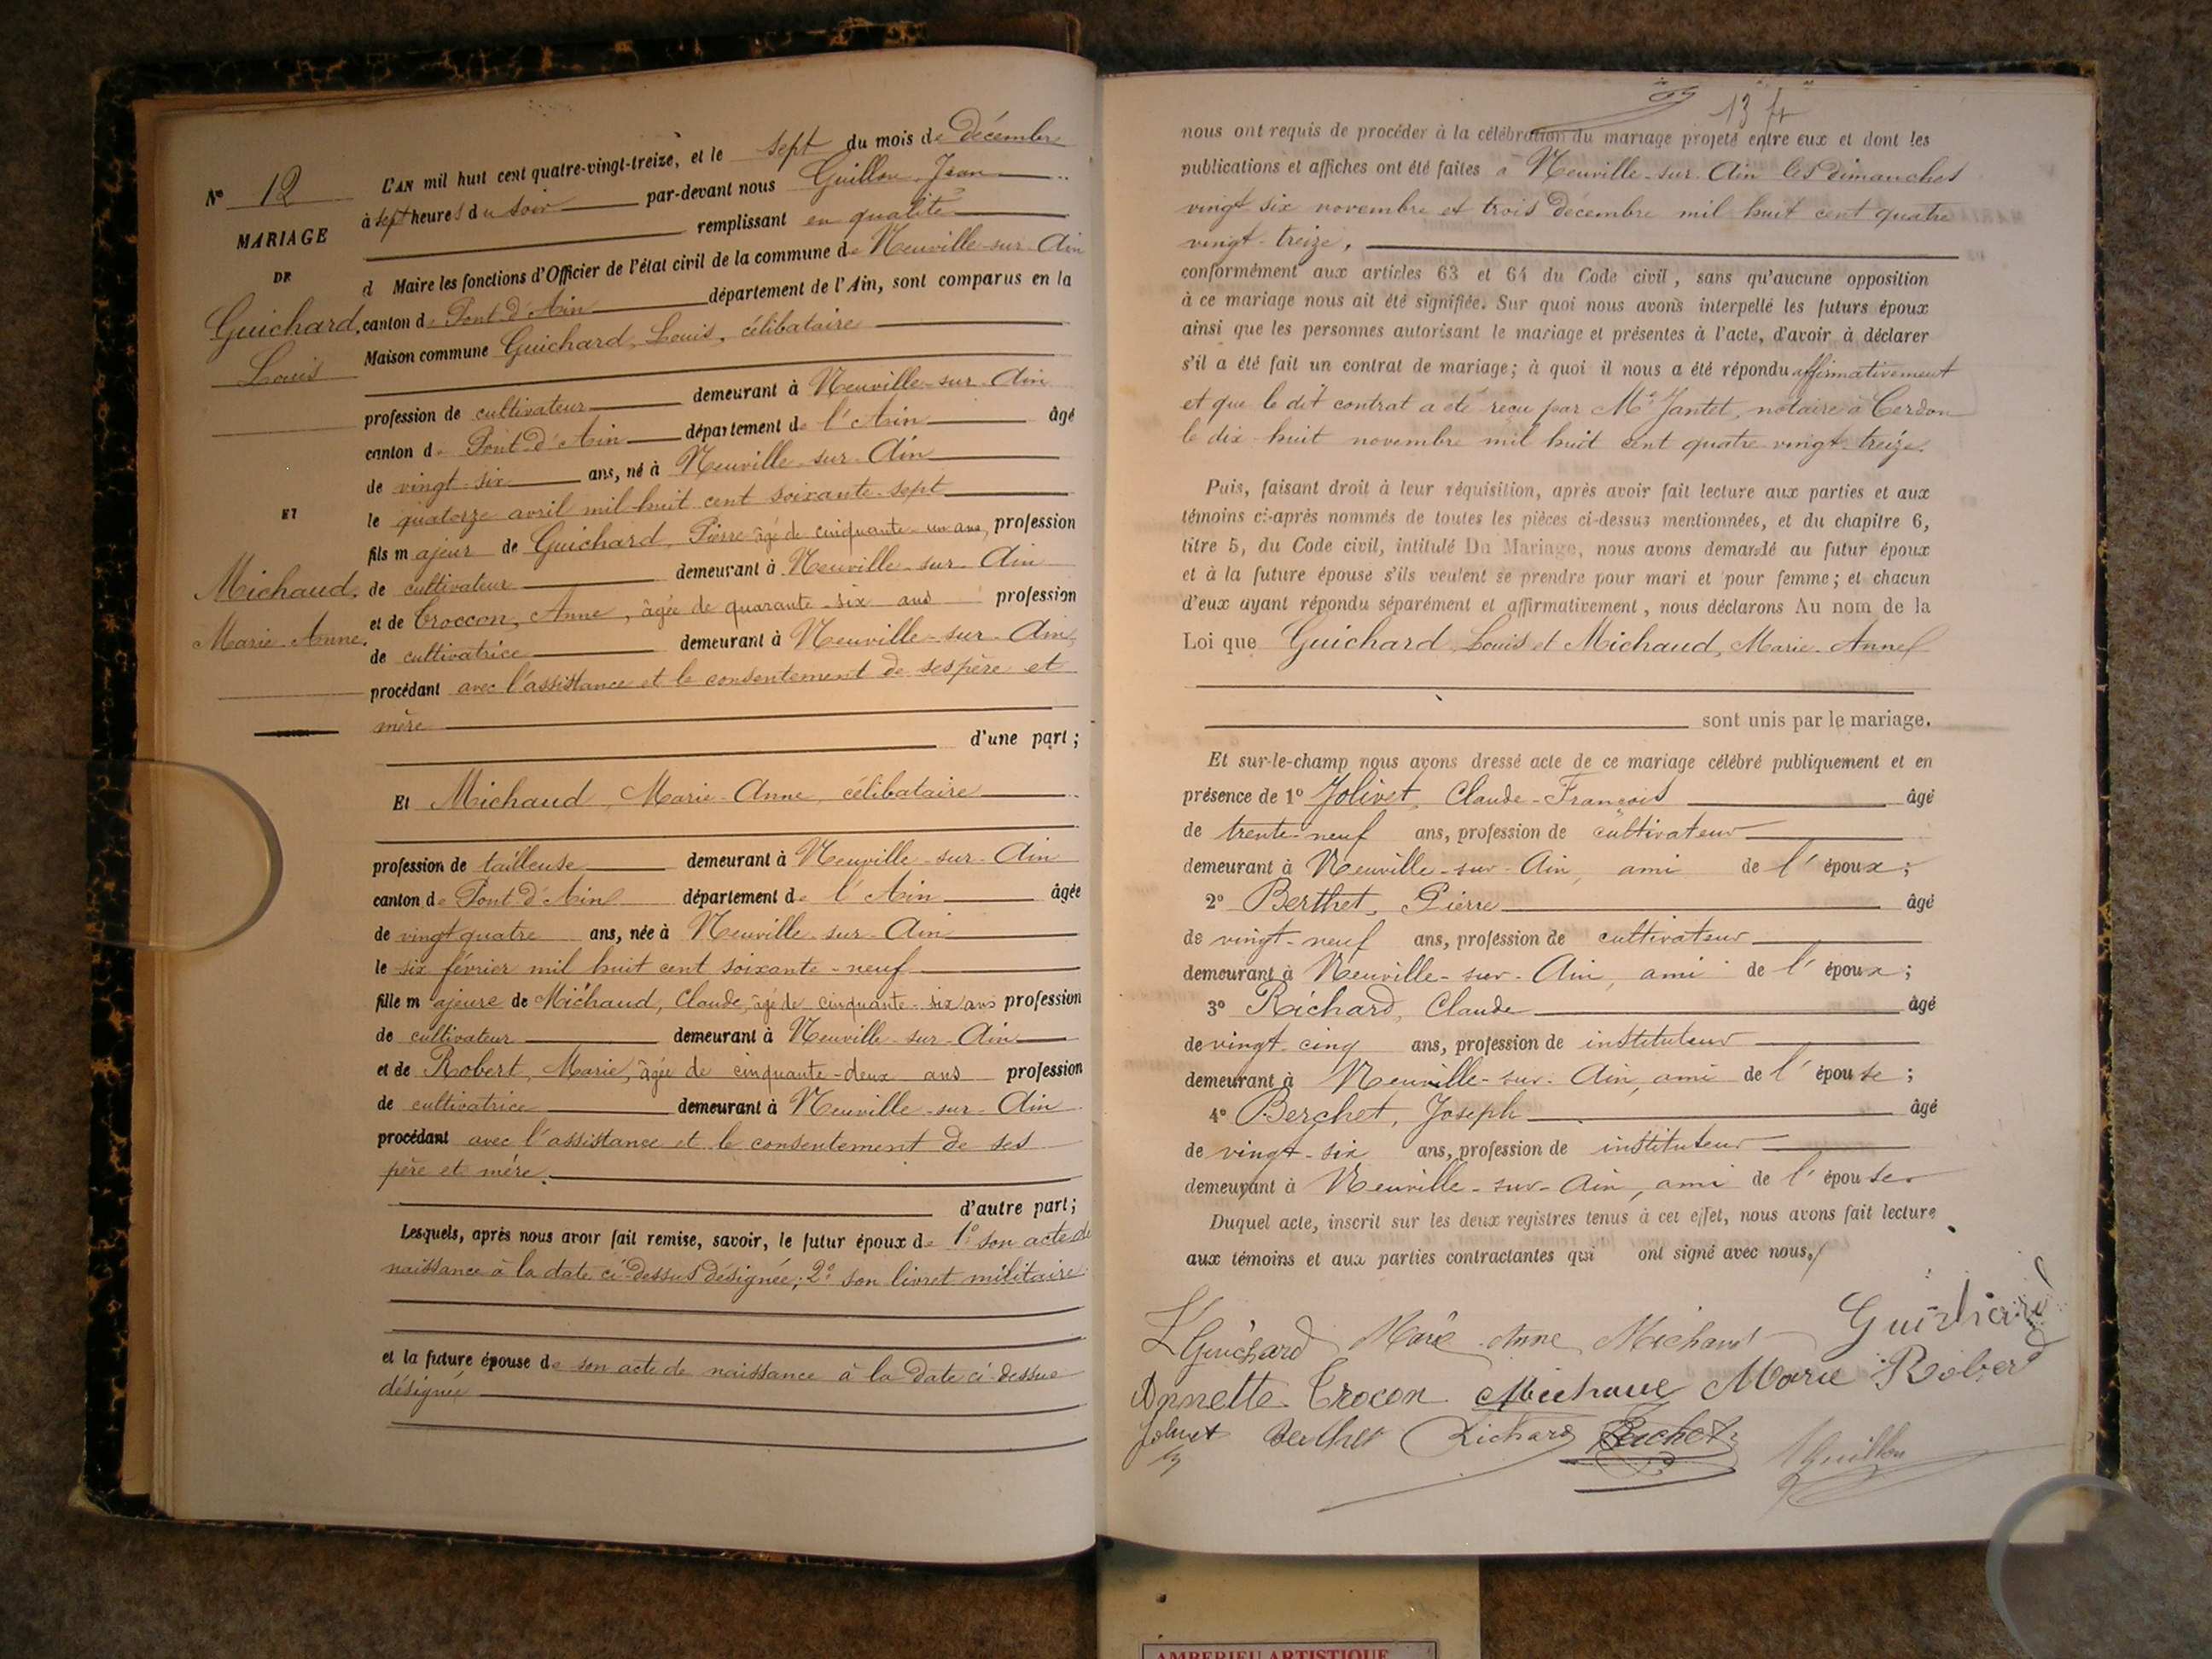 L'AN mil huit cent quatre-vingt-treize, et le sept du mois de Décembre
à sept heures du soir par-devant nous Guillon Jean
remplissant en qualité
d Maire les fonctions d'Officier de l'état civil de la commune de Neuville-sur-Ain
canton de Pont-d'Ain département de l'Ain, sont comparus en la
Maison commune Guichard, Louis, célibataire
profession de cultivateur demeurant à Neuville-sur-Ain
canton de Pont-d'Ain département de l'Ain âgé
de vingt-six ans, né à Neuville-sur-Ain
le quatorze avril mil huit cent soixante-sept
fils majeur de Guichard, Pierre âgé de cinquante-un ans, profession
de cultivateur demeurant à Neuville-sur-Ain
et de Croccon, Anne, âgée de quarante-six ans profession
de cultivatrice demeurant à Neuville-sur-Ain,
procédant avec l'assistance et le consentement de ses père et
mère
d'une part;
Et Michaud, Marie-Anne, célibataire
profession de tailleuse demeurant à Neuville-sur-Ain
canton de Pont-d'Ain département de l'Ain âgée
de vingt quatre ans, née à Neuville-sur-Ain
le six février mil huit cent soixante-neuf
fille majeure de Michaud, Claude, âgé de cinquante-six ans profession
de cultivateur demeurant à Neuville-sur-Ain
et de Robert, Marie, âgée de cinquante-deux ans profession
de cultivatrice demeurant à Neuville-sur-Ain
procédant avec l'assistance et le consentement de ses
père et mère.
d'autre part;
Lesquels, après nous avoir fait remise, savoir, le futur époux de 1° son acte de
naissance à la date ci-dessus désignée; 2° son livret militaire
et la future épouse de son acte de naissance à la date ci-dessus
désignée
N° 12
MARIAGE
DE
Guichard,
Louis
ET
Michaud,
Marie-Anne.
13 fr
nous ont requis de procéder à la célébration du mariage projeté entre eux et dont les
publications et affiches ont été faites à Neuville-sur-Ain les Dimanches
vingt six novembre et trois Décembre mil huit cent quatre
vingt-treize,
conformément aux articles 63 et 64 du Code civil, sans qu'aucune opposition
à ce mariage nous ait été signifiée. Sur quoi nous avons interpellé les futurs époux
ainsi que les personnes autorisant le mariage et présentes à l'acte, d'avoir à déclarer
s'il a été fait un contrat de mariage; à quoi il nous a été répondu affirmativement
et que le dit contrat a été reçu par Me Jantet, notaire à Cerdon
le dix-huit novembre mil huit cent quatre-vingt-treize.
Puis, faisant droit à leur réquisition, après avoir fait lecture aux parties et aux
témoins ci-après nommés de toutes les pièces ci-dessus mentionnées, et du chapitre 6,
titre 5, du Code civil, intitulé Du Mariage, nous avons demandé au futur époux
et à la future épouse s'ils veulent se prendre pour mari et pour femme; et chacun
d'eux ayant répondu séparément et affirmativement, nous déclarons Au nom de la
Loi que Guichard Louis et Michaud, Marie-Anne
sont unis par le mariage.
Et sur-le-champ nous avons dressé acte de ce mariage célébré publiquement et en
présence de 1° Jolivet, Claude-François âgé
de trente-neuf ans, profession de cultivateur
demeurant à Neuville-sur-Ain, ami de l'époux;
2° Berthet, Pierre âgé
de vingt-neuf ans, profession de cultivateur
demeurant à Neuville-sur-Ain, ami de l'époux;
3° Richard, Claude âgé
de vingt-cinq ans, profession de instituteur
demeurant à Neuville-sur-Ain, ami de l'épouse;
4° Berchet, Joseph âgé
de vingt-six ans, profession de instituteur
demeurant à Neuville-sur-Ain, ami de l'épouse
Duquel acte, inscrit sur les deux registres tenus à cet effet, nous avons fait lecture
aux témoins et aux parties contractantes qui ont signé avec nous.
L Guichard Marie Anne Michaud Guichard
Annette Trocon Michaud Marie Robert
Jolivet Berthet Richard Berchet Guillon
AMBERIEU ARTISTIQUE